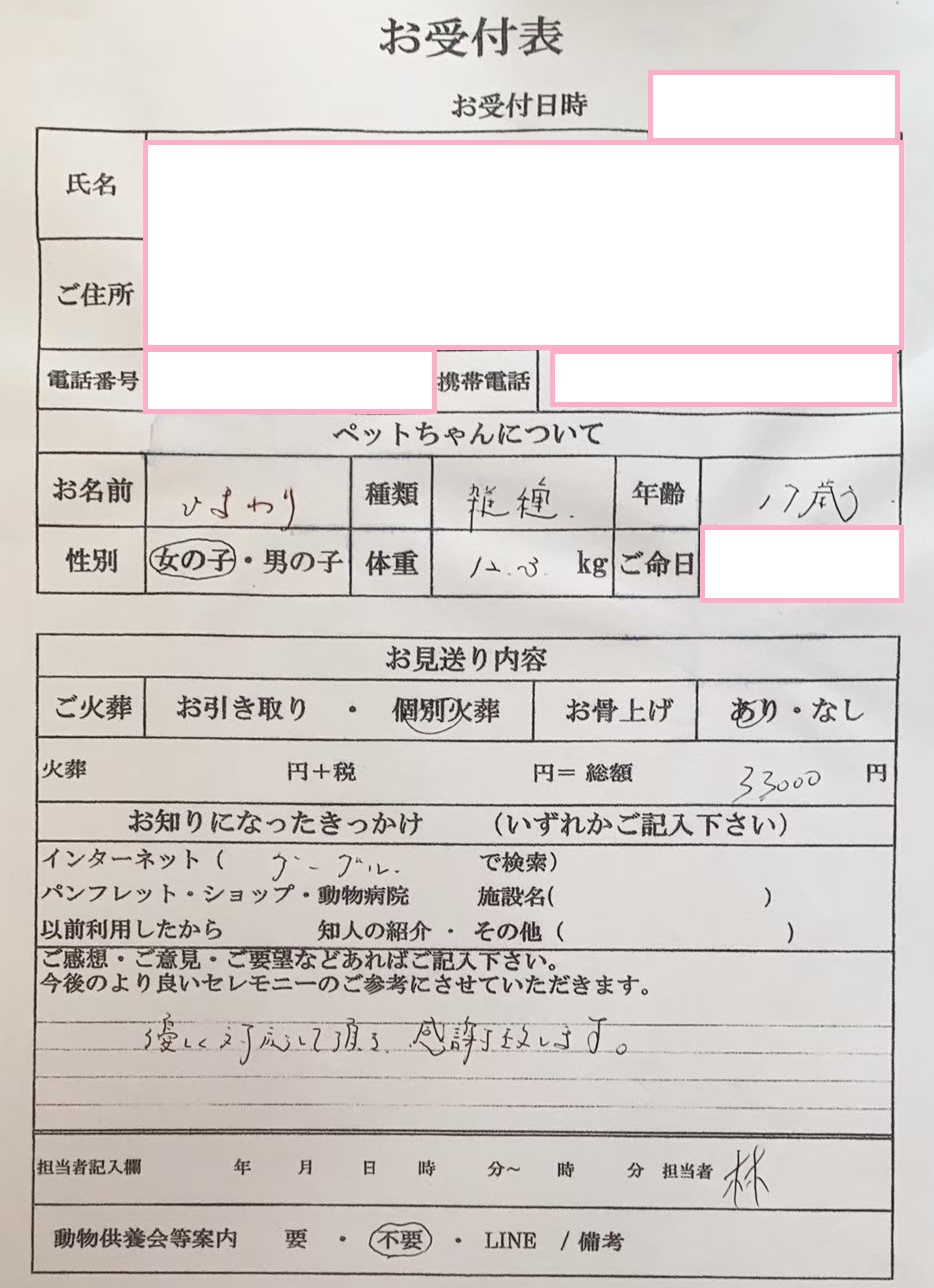 お受付表
お受付日時
氏名
ご住所
電話番号 携帯電話
ペットちゃんについて
お名前 ひまわり 種類 雑種. 年齢 17歳
性別 女の子・男の子 体重 12.3 kg ご命日
お見送り内容
ご火葬 お引き取り ・ 個別火葬 お骨上げ あり・なし
火葬 円+税 円= 総額 33000 円
お知りになったきっかけ (いずれかご記入下さい)
インターネット ( グーグル. で検索)
パンフレット・ショップ・動物病院 施設名( )
以前利用したから 知人の紹介 ・ その他 ( )
ご感想・ご意見・ご要望などあればご記入下さい。
今後のより良いセレモニーのご参考にさせていただきます。
優しく対応して頂き、感謝致します。
担当者記入欄 年 月 日 時 分~ 時 分 担当者 林
動物供養会等案内 要 ・ 不要 ・ LINE / 備考